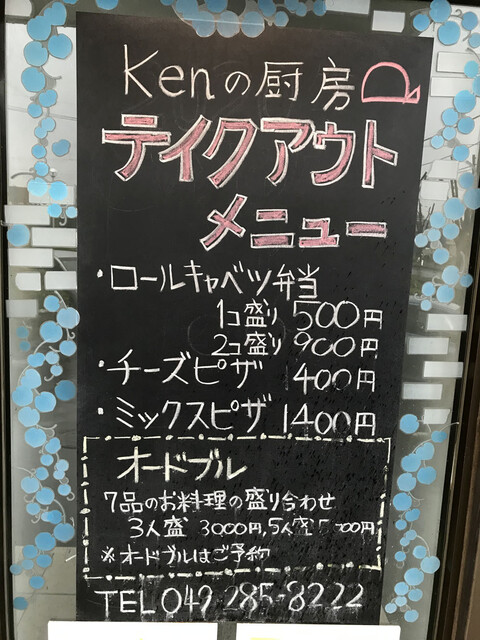 Kenの厨房
テイクアウト
メニュー
・ロールキャベツ弁当
1コ盛り 500円
2コ盛り 900円
・チーズピザ 400円
・ミックスピザ 1400円
オードブル
7品のお料理の盛り合わせ
3人盛 3000円,5人盛 00円
※オードブルはご予約
TEL 049 285-8222